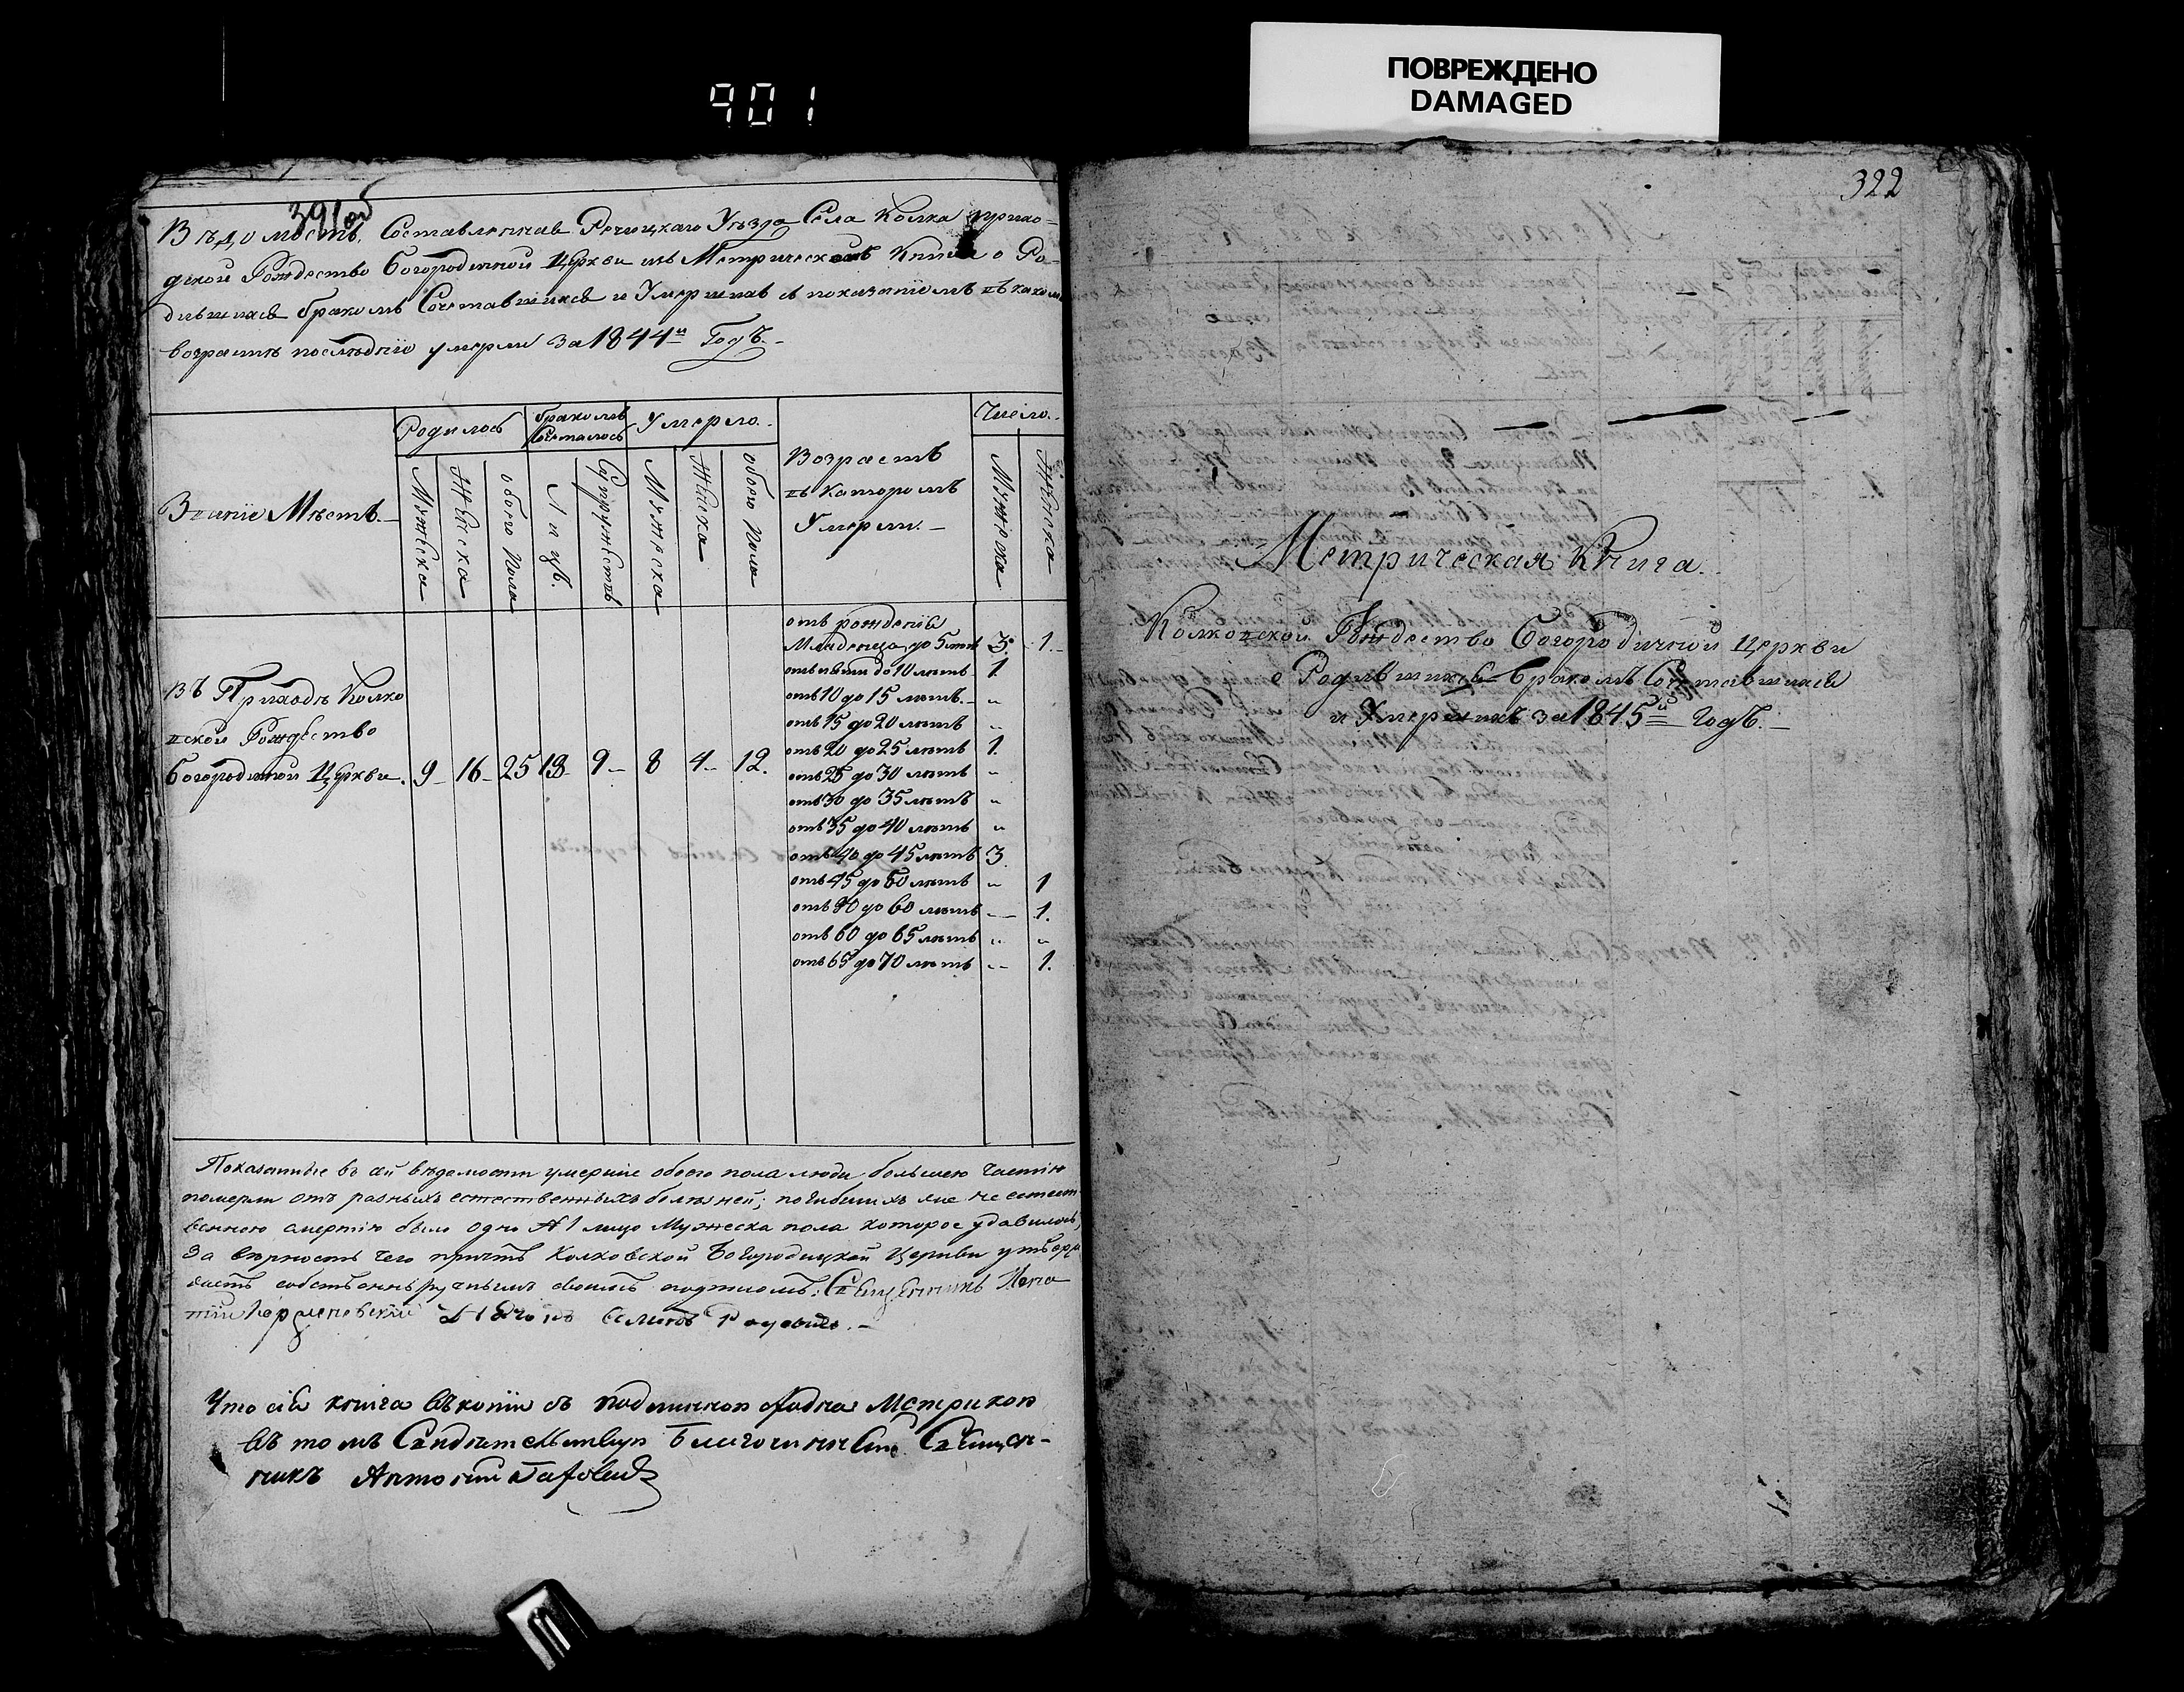 901
ПОВРЕЖДЕНО
DAMAGED
391об
Вѣдомость, Составленная Речицкаго Уѣзда Села Колка прихо-
дской Рождество Богородичной Церкви изъ Метрической Книги о Ро-
дившихся бракомъ Сочетавшихся и Умершихъ съ показаніемъ въ какомъ
возрастѣ послѣдніе умерли за 1844й Годъ.-
Званіе Мѣстъ.-
Родилось
бракомъ Сочеталось
Умерло.-
Возрастъ въ которомъ Умерли.-
Число.-
Мужеска
Женска
обоего Пола
Лицъ.
Супружествъ
Мужеска
Женска
обоего Пола
Мужеска.
Женска
Въ Приходѣ Колко
вской Рождество
Богородичной Церкви.
9- 16- 25 18- 9- 8 4- 12.
отъ рожденія
Младенца до 5 лѣтъ 3. 1.-
отъ пяти до 10 лѣтъ 1.
отъ 10 до 15 лѣтъ.- "
отъ 15 до 20 лѣтъ "
отъ 20 до 25 лѣтъ 1.
отъ 25 до 30 лѣтъ "
отъ 30 до 35 лѣтъ "
отъ 35 до 40 лѣтъ "
отъ 40 до 45 лѣтъ 3.
отъ 45 до 50 лѣтъ " 1
отъ 50 до 60 лѣтъ -- 1.
отъ 60 до 65 лѣтъ " "
отъ 65 до 70 лѣтъ -- 1.
Показанные въ сей вѣдомости умершіе обоего пола люди большею частію
померли отъ разныхъ естественныхъ болѣзней; погибшихъ же не естест-
венною смертію было одно № 1 лицо Мужеска пола которое удавилось,
За вѣрность чего причтъ Колковской Богородицкой Церкви утверж
даетъ собственноручнымъ своимъ подписомъ: Священникъ Игна
тій
Что сія книга въ копіи съ подлинной сходна Метрикой
въ томъ Свидѣтельствую Благочинный Священ-
никъ Антоній
322
Метрическая Книга.
Колковской Рождество Богородичной Церкви
о Родившихся Бракомъ Сочетавшихся
и Умершихъ за 1845й Годъ.-